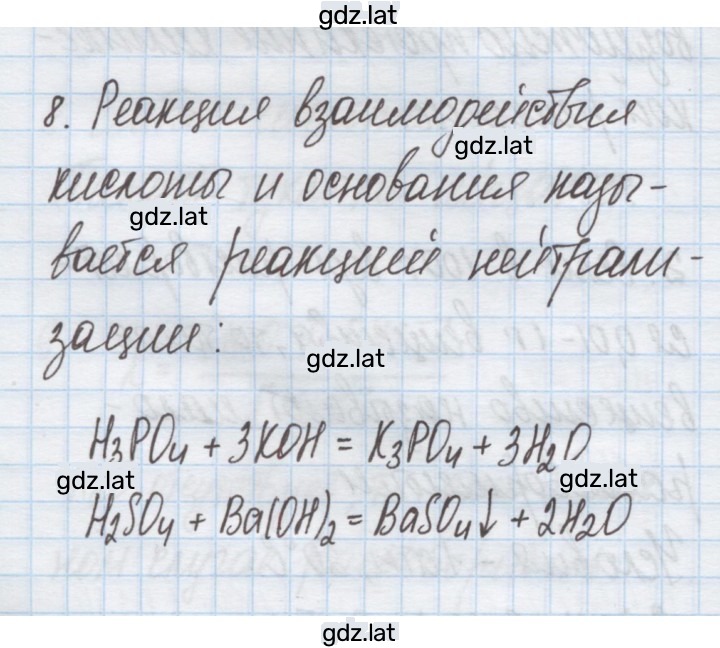 gdz.lat
8. Реакция взаимодействия
gdz.lat
кислоты и основания назы-
gdz.lat
вается реакцией нейтрали-
зации:
gdz.lat
H₃PO₄ + 3KOH = K₃PO₄ + 3H₂O
gdz.lat gdz.lat
H₂SO₄ + Ba(OH)₂ = BaSO₄↓ + 2H₂O
gdz.lat